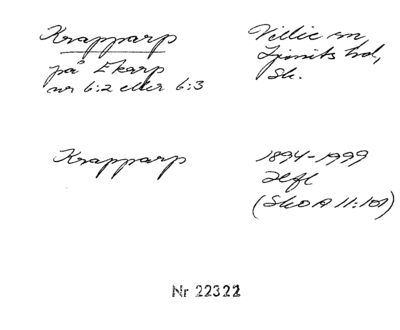 Krapparp
på Ekarp
nr 6:2 eller 6:3
Villie sn
Ljunits hd,
Sk.
Krapparp
1894-1999
Hfl
(SkOA 11:101)
Nr 22322